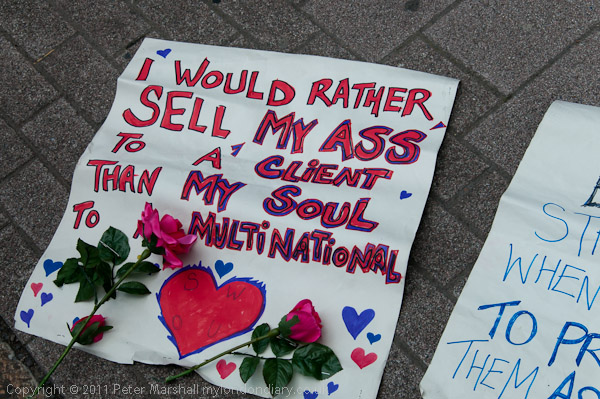 I WOULD RATHER
SELL MY ASS
TO A CLIENT
THAN MY SOUL
TO A MULTINATIONAL
ST
WHEN
TO PR
THEM AS
Copyright © 2011 Peter Marshall mylondondiary.co.uk